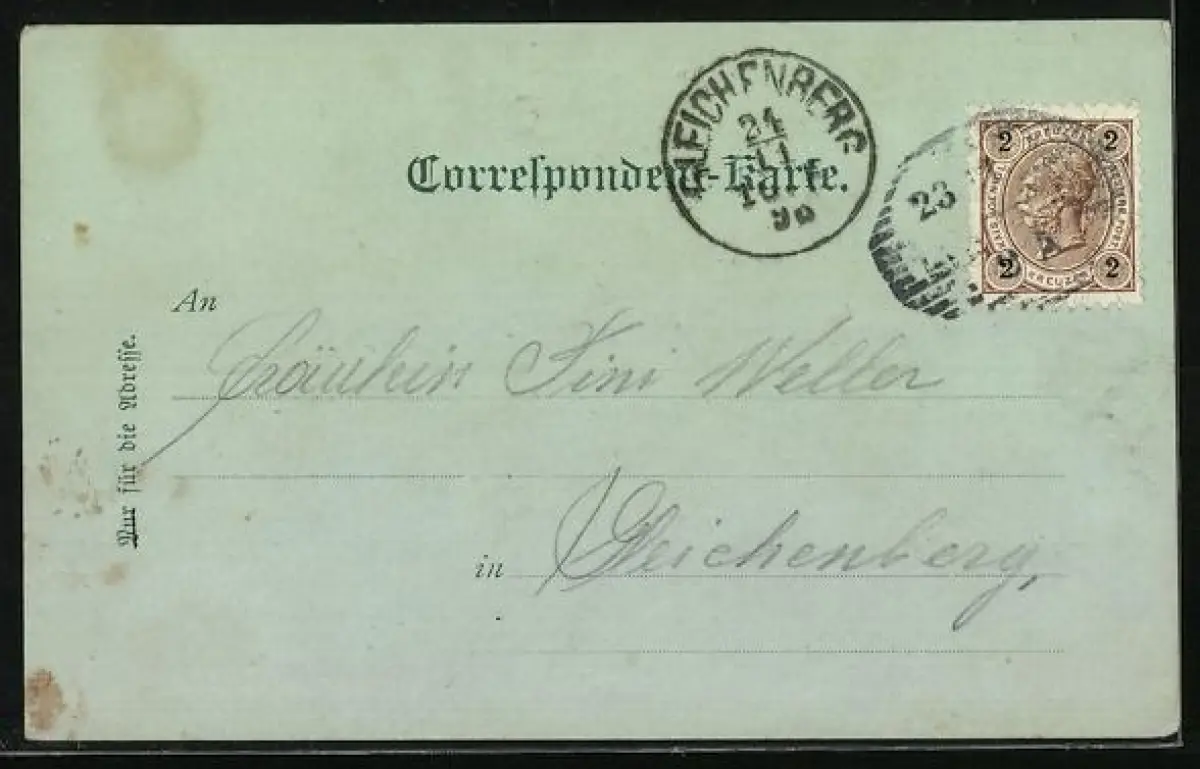 GLEICHENBERG
24
11
96
23
2 KREUZER 2
2 KREUZER 2
Correſpondenz-Karte.
An
Fräulein Fini Weller
Nur für die Adreſſe.
in Gleichenberg,